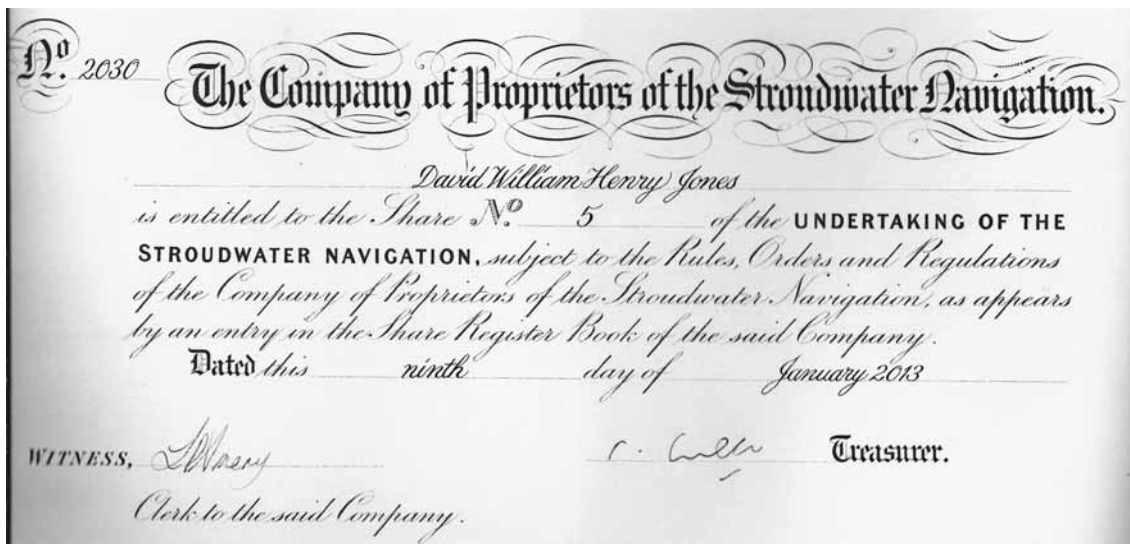 No. 2030
The Company of Proprietors of the Stroudwater Navigation.
David William Henry Jones
is entitled to the Share No. 5 of the UNDERTAKING OF THE
STROUDWATER NAVIGATION, subject to the Rules, Orders and Regulations
of the Company of Proprietors of the Stroudwater Navigation, as appears
by an entry in the Share Register Book of the said Company.
Dated this ninth day of January 2013
WITNESS, Treasurer.
Clerk to the said Company.